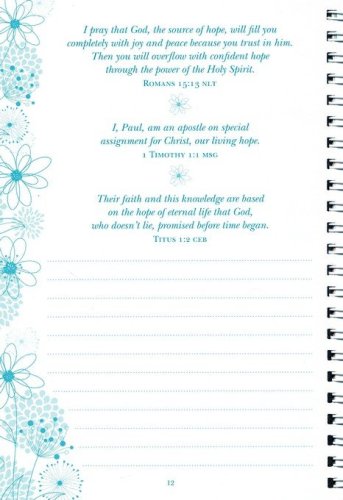 I pray that God, the source of hope, will fill you
completely with joy and peace because you trust in him.
Then you will overflow with confident hope
through the power of the Holy Spirit.
Romans 15:13 NLT
I, Paul, am an apostle on special
assignment for Christ, our living hope.
1 Timothy 1:1 MSG
Their faith and this knowledge are based
on the hope of eternal life that God,
who doesn't lie, promised before time began.
Titus 1:2 CEB
12